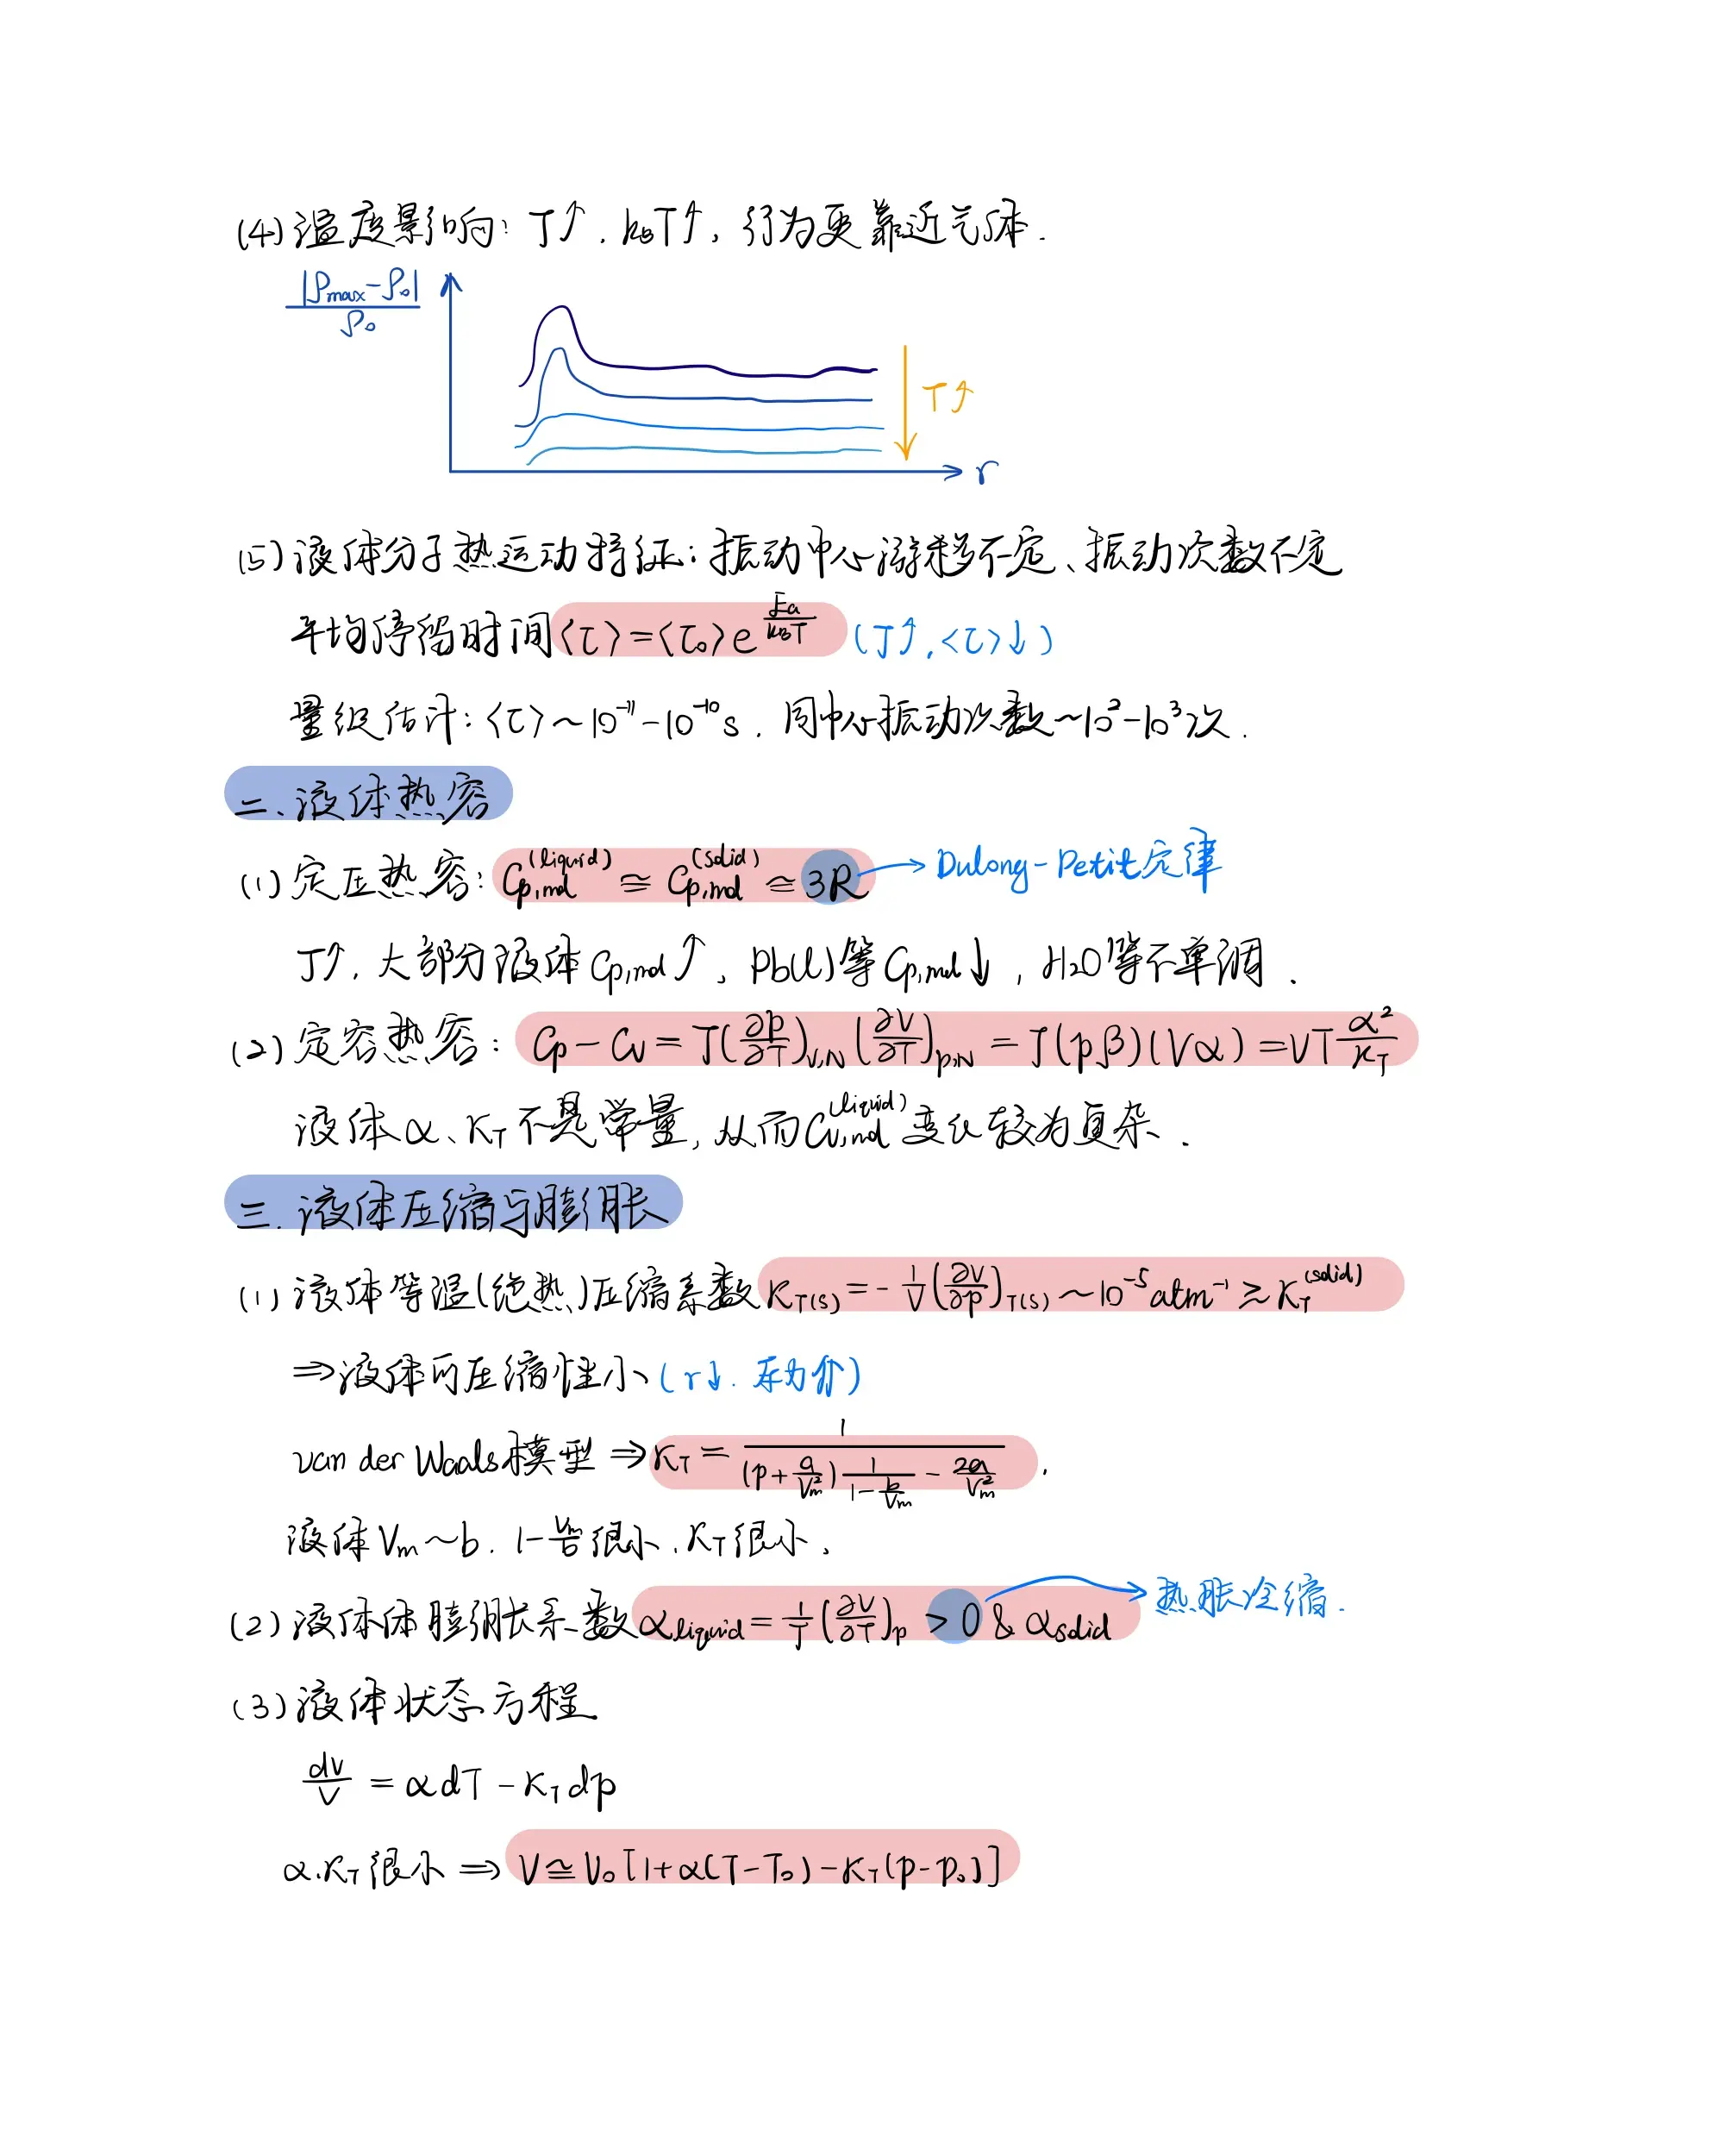 (4) 温度影响: T↑, k_BT↑, 行为更靠近气体.
|ρ_max-ρ_0|/ρ_0
T↑
r
(5) 液体分子热运动特征: 振动中心游移不定、振动次数不定
平均停留时间⟨τ⟩=⟨τ_0⟩e^{E_a/(k_BT)} (T↑, <τ>↓)
量级估计: ⟨τ⟩~10^{-11}-10^{-10}s. 同中心振动次数~10^2-10^3次.
二、液体热容
(1) 定压热容: C_{p,mol}^{(liquid)} ≅ C_{p,mol}^{(solid)} ≃ 3R → Dulong-Petit定律
T↑, 大部分液体C_{p,mol}↑、Pb(l)等C_{p,mol}↓, H2O等不单调.
(2) 定容热容: C_p - C_V = T(∂p/∂T)_{V,N} (∂V/∂T)_{p,N} = T(pβ)(Vα) = VT α^2/κ_T
液体α、κ_T不是常量, 从而C_{V,mol}^{(liquid)}变化较为复杂.
三. 液体压缩与膨胀
(1) 液体等温(绝热)压缩系数κ_{T(S)} = -1/V (∂V/∂p)_{T(S)} ~ 10^{-5}atm^{-1} ≳ κ_T^{(solid)}
⇒ 液体可压缩性小 (r↓. 斥力⇑)
van der Waals模型 ⇒ κ_T = 1/((p+a/V_m^2) 1/(1-b/V_m) - 2a/V_m^2).
液体V_m~b. 1-V_m/b很小, κ_T很小.
(2) 液体体膨胀系数α_{liquid} = 1/T (∂V/∂T)_p > 0 & α_{solid} → 热胀冷缩.
(3) 液体状态方程
dV/V = αdT - κ_T dp
α.κ_T很小 ⇒ V ≅ V_0[1+α(T-T_0)-κ_T(p-p_0)]